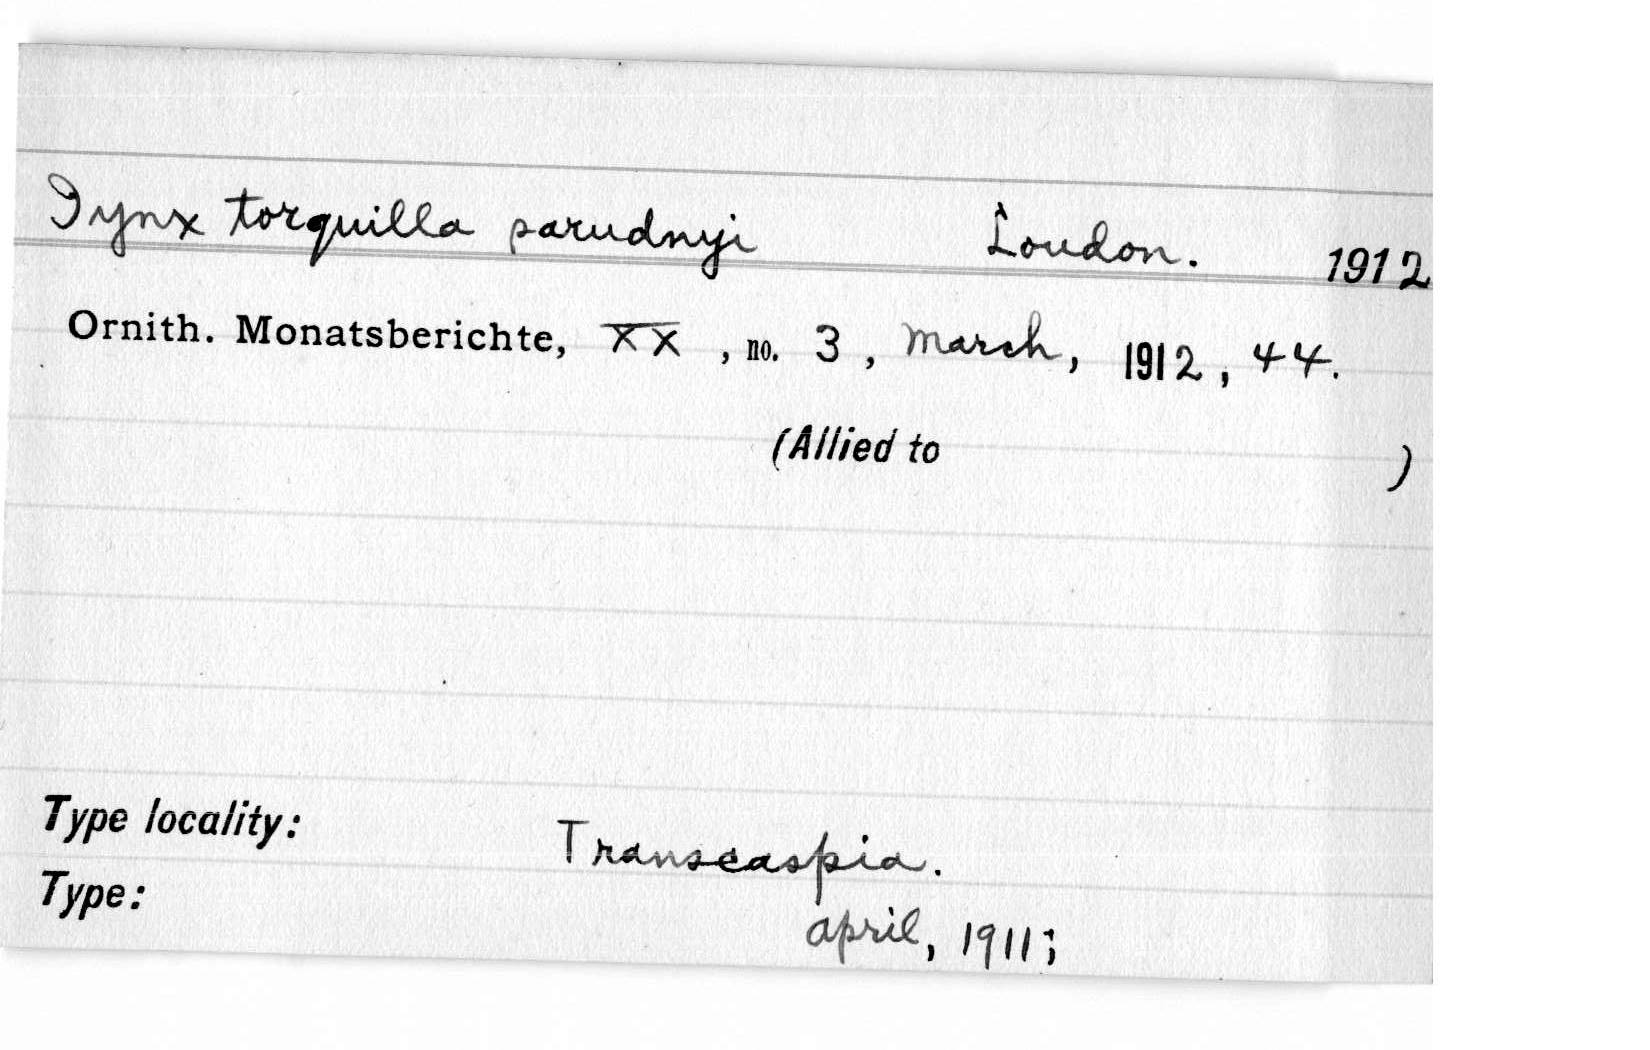 Iynx torquilla sarudnyi Loudon. 1912
Ornith. Monatsberichte, XX, no. 3, March, 1912, 44.
(Allied to )
Type locality: Transcaspia.
Type: april, 1911;